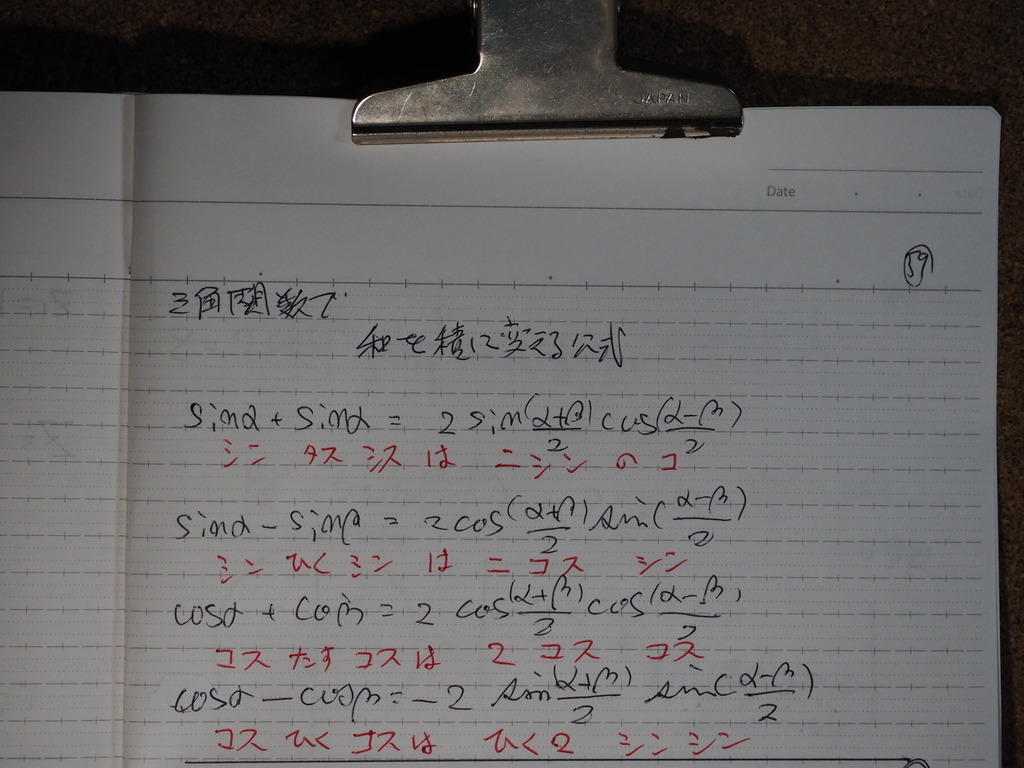 JAPAN
Date
59
三角関数で
和を積に変える公式
sinα + sinα = 2 sin(α+β)/2 cos(α-β)/2
シン タス シス は ニ シン の コ
sinα - sinβ = 2 cos(α+β)/2 sin(α-β)/2
シン ひく シン は ニ コス シン
cosα + cosβ = 2 cos(α+β)/2 cos(α-β)/2
コス たす コス は 2 コス コス
cosα - cosβ = -2 sin(α+β)/2 sin(α-β)/2
コス ひく コス は ひく2 シン シン